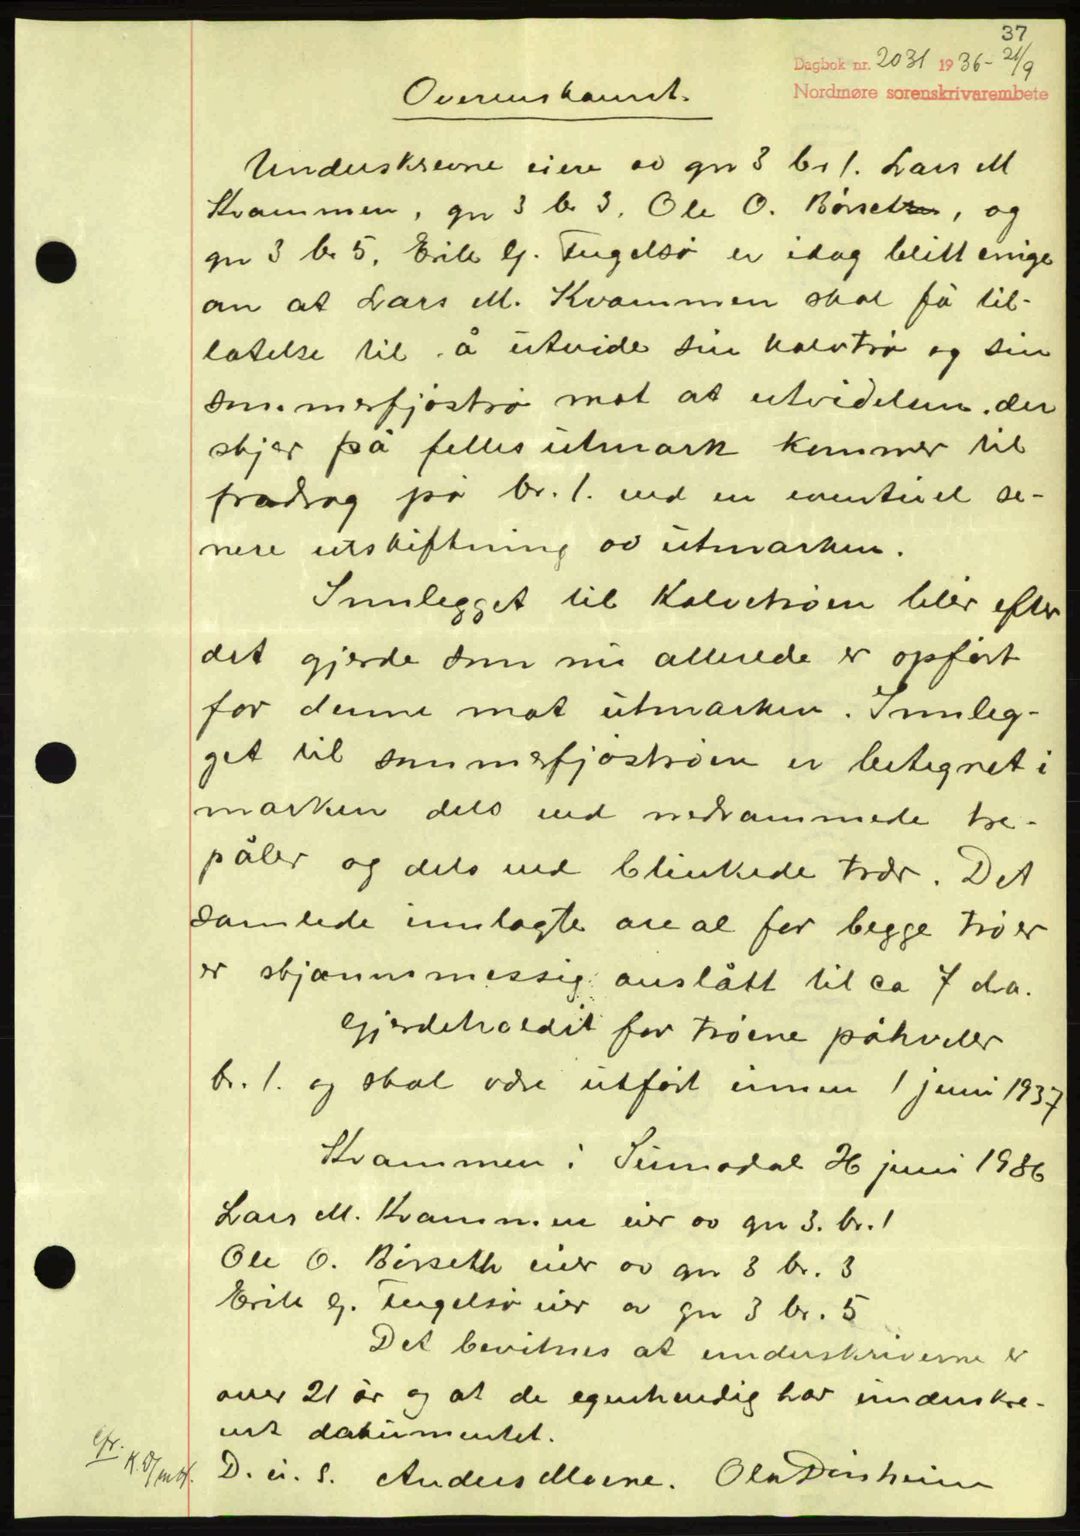 37
Dagbok nr. 2031 1936 - 21/9
Nordmøre sorenskrivarembete
Overenskomst.
Underskrevne eiere av gn 3 br 1. Lars M
Kvammen, gn 3 br 3, Ole O. Børseth, og
gn 3 br 5, Erik G. Fugelsø er idag blitt enige
om at Lars M. Kvammen skal få til-
latelse til å utvide sin kalvtrø og sin
sommerfjøstrø mot at utvidelsen, der
skjer på felles utmark kommer til
fradrag på br. 1. ved en eventuel se-
nere utskiftning av utmarken.
Innlegget til Kalvetrøen blir efter
det gjerde som nu allerede er opført
for denne mot utmarken. Innleg-
get til sommerfjøstrøen er betegnet i
marken dels ved nedrammede tre-
påler og dels ved blinkede trær. Det
samlede innlagte areal for begge trøer
er skjønnsmessig anslått til ca 7 da.
Gjerdeholdet for trøene påhviler
br. 1. og skal være utført innen 1 juni 1937
Kvammen i Sunndal 26 juni 1936
Lars M. Kvammen eier av gn 3. br. 1
Ole O. Børseth eier av gn 3 br. 3
Erik G. Fugelsø eier av gn 3 br. 5
Det bevitnes at underskriverne er
over 21 år og at de egenhendig har underskre-
vet dokumentet.
D. u. s. Anders Moene. Ola
cfr.